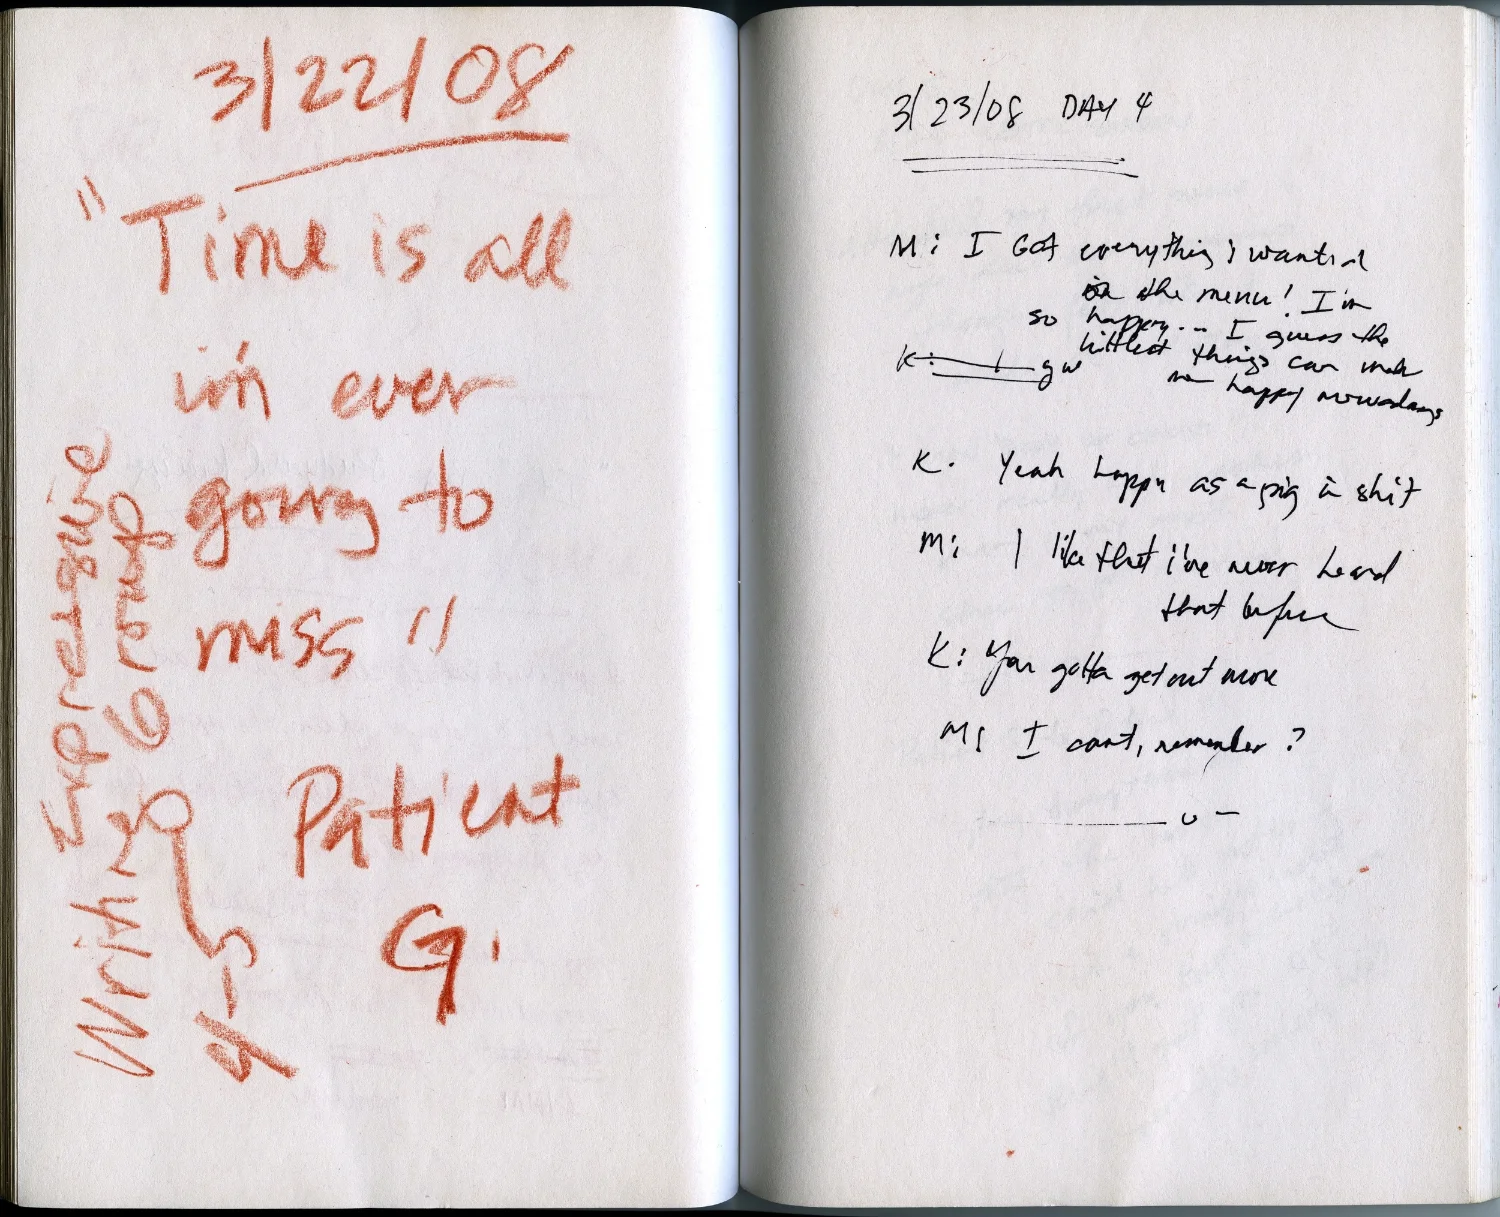 3/22/08
"Time is all
i'm ever
going to
miss"
Patient
G.
Expressive
Writing Group
4-5
3/23/08 DAY 4
M: I Got everything i wanted
on the menu! I'm
so happy... I guess the
littlest things can make
me happy nowadays
K: I gu
K. Yeah happy as a pig in shit
M: I like that i've never heard
that before
K: You gotta get out more
M: I cant, remember?